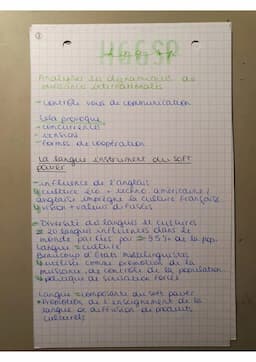 ①
HGGSP
Analyser les dynamiques de
puissances internationales
- contrôle voies de communication
Cela provoque
- concurrences
- tensions
- formes de coopération
La langue instrument du soft
power
- influence de l'anglais
culture géo + techno américaine /
anglais imprègne la culture française
vision + valeurs diffusées
- Diversité des langues et cultures
20 langues influencées dans le
monde parlées par 95% de la pop.
Langue = culture
Beaucoup d'États multilingues
utilisé comme promotion de la
puissance, de contrôle de la population
politique de
Langue = composante du soft power
Promotion de l'enseignement de la
langue et diffusion de produits
culturels